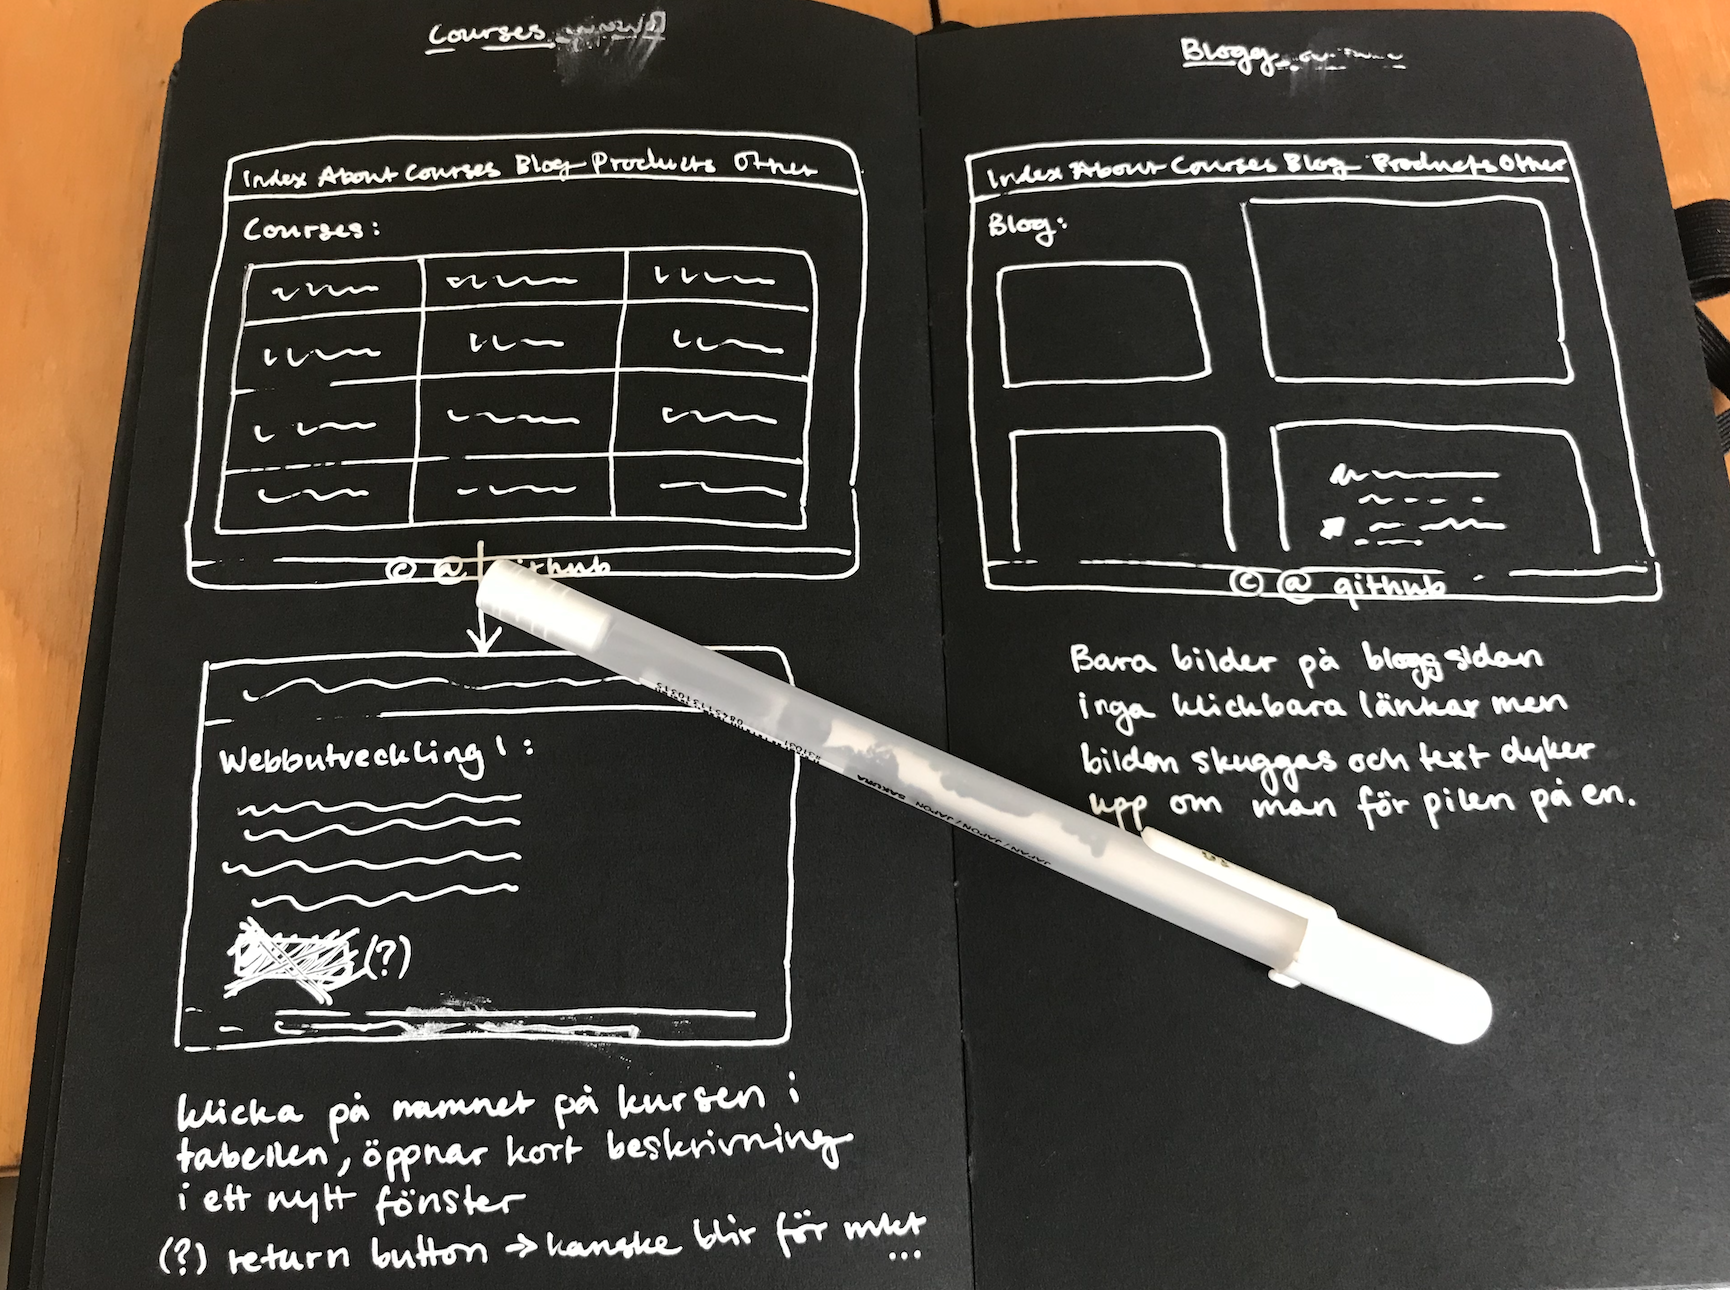 Courses
Index About Courses Blog Products Other
Courses:
© @ github
Webbutveckling 1:
(?)
klicka på namnet på kursen i
tabellen, öppnar kort beskrivning
i ett nytt fönster
(?) return button → kanske blir för mkt
...
Blogg
Index About Courses Blog Products Other
Blog:
© @ github
Bara bilder på bloggsidan
inga klickbara länkar men
bilden skuggas och text dyker
upp om man för pilen på en.
JAPAN/JAPON/JAPÓN SAKURA